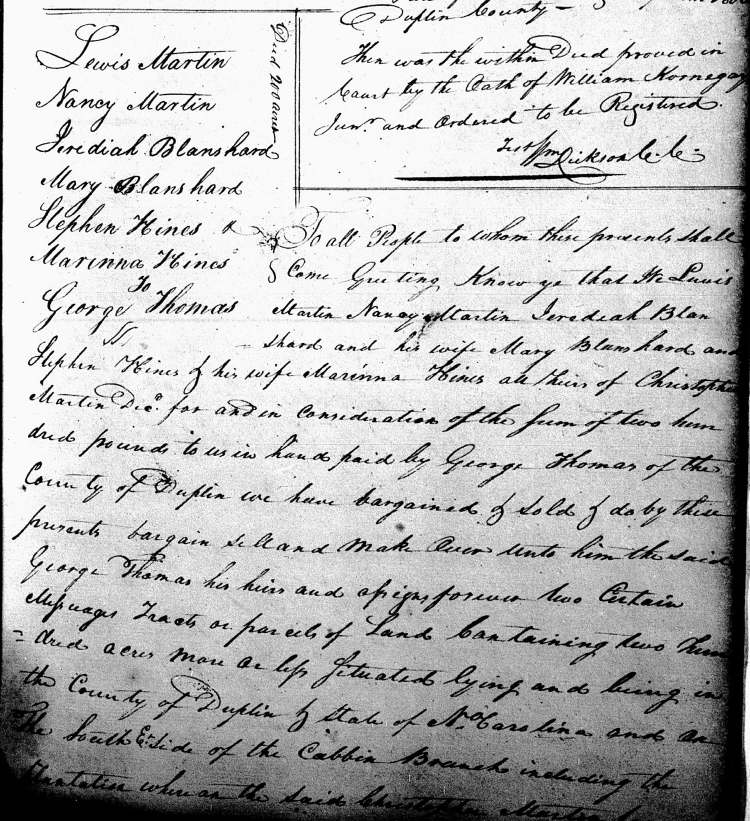 Duplin County
Then was the within Deed proved in
Court by the Oath of William Kornegay
Junr and Ordered to be Registered.
Test Wm Dickson C. C.
Lewis Martin
Nancy Martin
Jerediah Blanshard
Mary Blanshard
Stephen Hines &
Marinna Hines
To
George Thomas
Deed 200 acres
To all People to whom these presents shall
Come Greeting Know ye that We Lewis
Martin Nancy Martin Jerediah Blan
shard and his wife Mary Blanshard and
Stephen Hines & his wife Marinna Hines all heirs of Christopher
Martin Decd. for and in Consideration of the Sum of two hun
dred pounds to us in hand paid by George Thomas of the
County of Duplin we have bargained & Sold & do by these
presents bargain sell and make Over unto him the said
George Thomas his heirs and assigns forever two Certain
Messuages Tracts or parcels of Land Containing two hun
= dred acres more or less Situated lying and being in
the County of Duplin & State of No. Carolina and on
The South Et. Side of the Cabbin Branch including the
Plantation whereon the said Christopher Martin